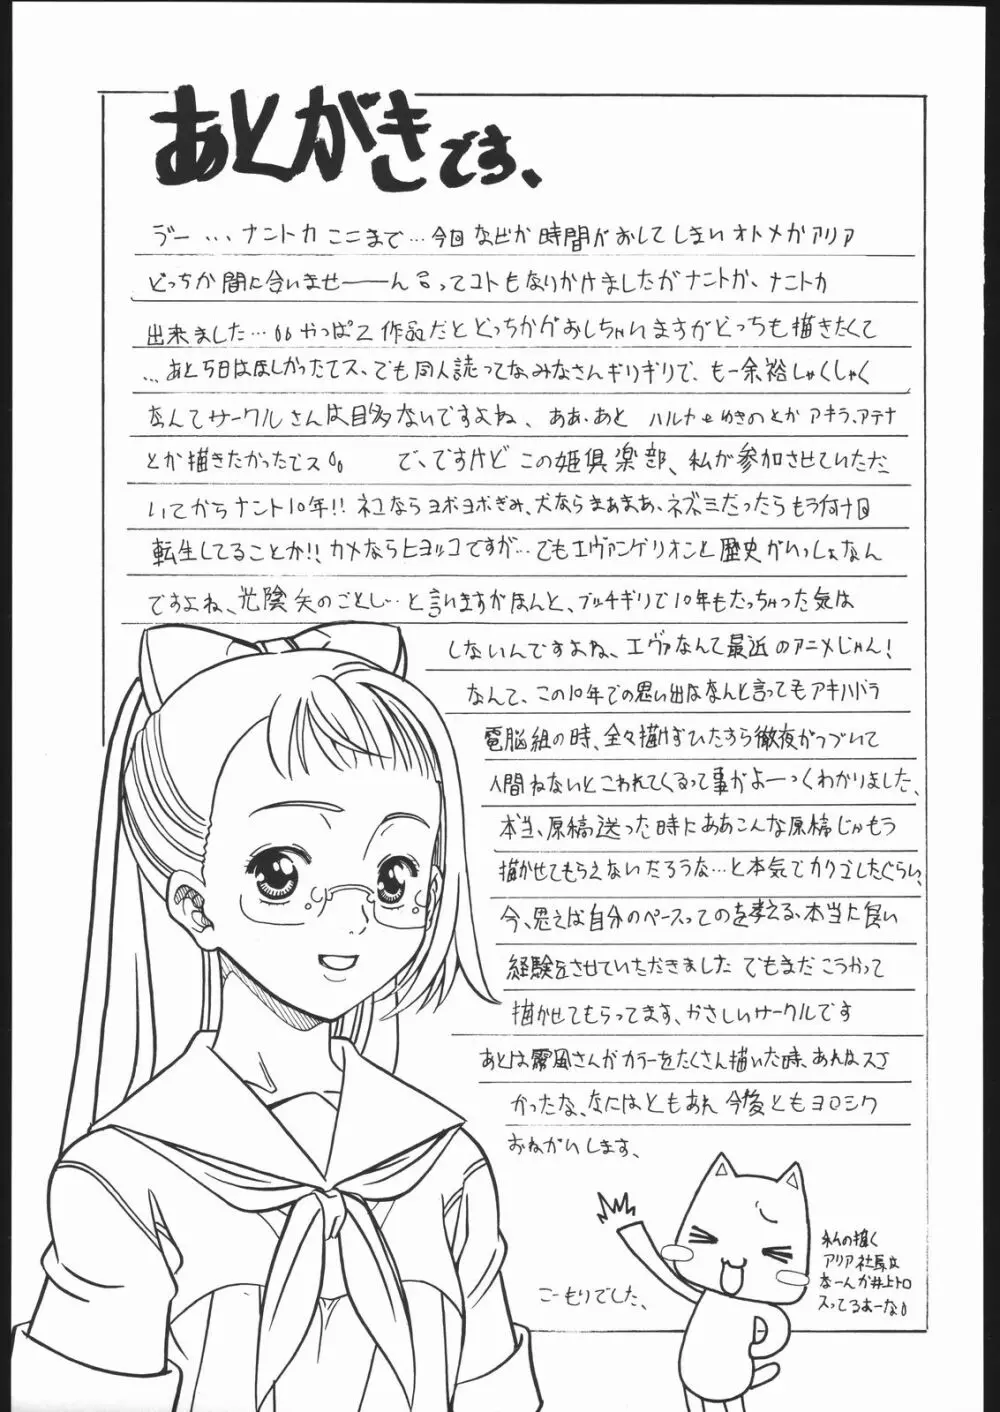 あとがきです、
うー...ナントカここまで...今回なぜか時間がおしてしまいオトメかアリア
どっちか間に合いませーーんってコトもなりかけましたがナントカ、ナントカ
出来ました...。。やっぱ2作品だとどっちかがおしちゃいますがどっちも描きたくて
...あと5日はほしかったでス、でも同人誌ってなみなさんギリギリで、もー余裕しゃくしゃく
なんてサークルさんは目多ないですよね、ああ、あと ハルナやゆきのとかアキラ、アテナ
とか描きたかったでス。。 で、ですけどこの姫倶楽部、私が参加させていただ
いてからナント10年!!ネコならヨボヨボぎみ、犬ならまぁまぁ、ネズミだったらもう何回
転生してることか!!カメならヒヨッコですが...でもエヴァンゲリオンと歴史がいっしょなん
ですよね、光陰矢のごとし...と言いますがほんと、ブッチギリで10年もたっちゃった気は
しないんですよね、エヴァなんて最近のアニメじゃん!
なんて、この10年での思い出はなんと言ってもアキハバラ
電脳組の時、全々描けずひたすら徹夜がつづいて
人間ねないとこわれてくるって事がよーーくわかりました、
本当、原稿送った時にああこんな原稿じゃもう
描かせてもらえないだろうな...と本気でカクゴしたぐらい、
今、思えば自分のペースってのを考える、本当に良い
経験をさせていただきました でもまだこうやって
描かせてもらってます、やさしいサークルです
あとは霧風さんがカラーをたくさん描いた時、あんはスゴ
かったな、なにはともあれ今後ともヨロシク
おねがいします、
こーもりでした、
私の描く
アリア社長は
なーんか井上トロ
入ってるよーな。